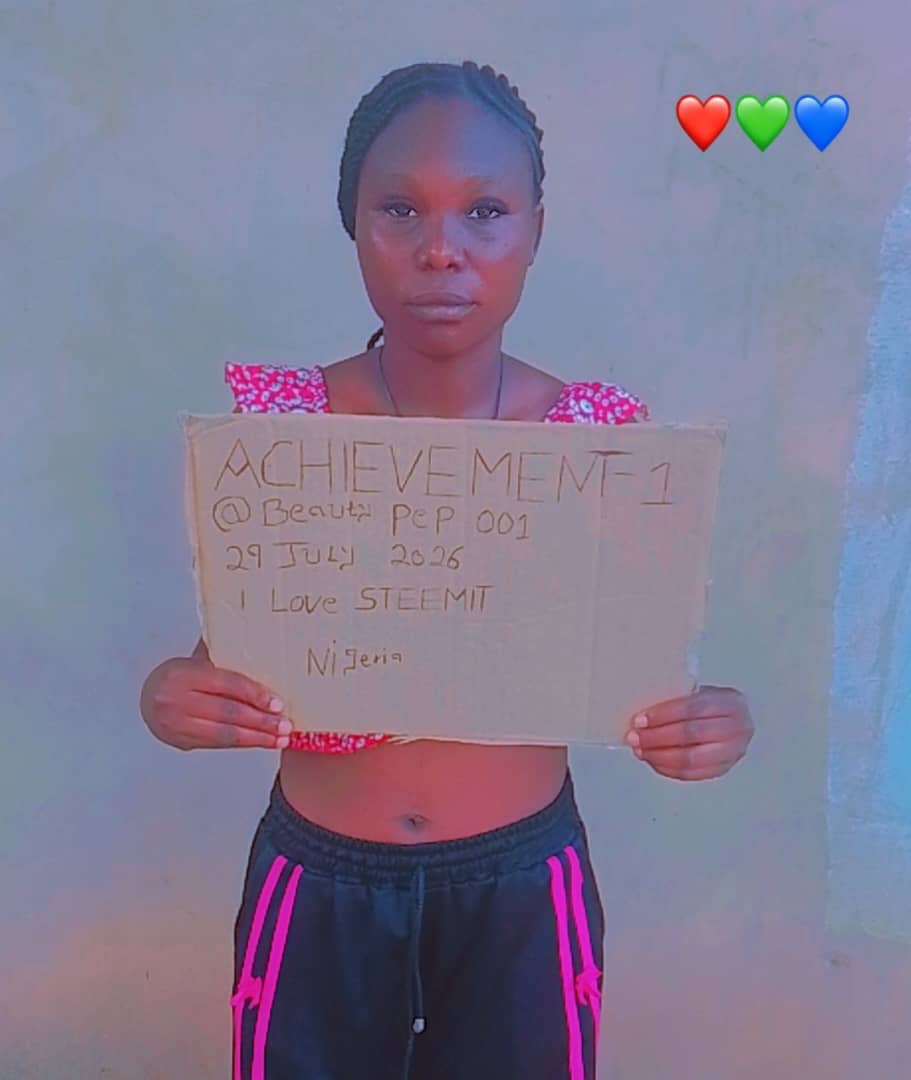 ACHIEVEMENT-1
@Beauty PeP 001
29 July 2026
I Love STEEMIT
Nigeria